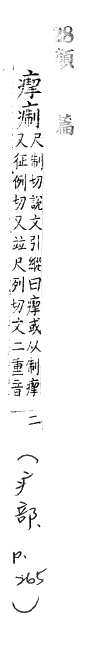 28類
篇
瘳瘌尺制切說文引縱曰瘳或从制瘳
又征例切又竝尺列切文二重音
一
二
(疒部、
p.
265
)